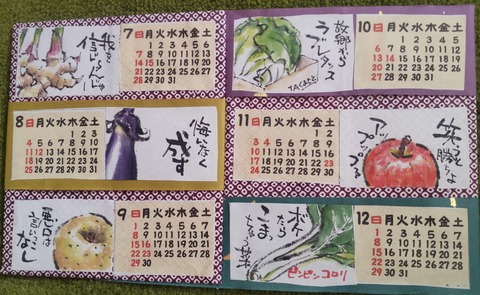 7
日月火水木金土
1 2 3 4 5 6
7 8 9 10 11 12 13
14 15 16 17 18 19 20
21 22 23 24 25 26 27
28 29 30 31
8
日月火水木金土
1 2 3
4 5 6 7 8 9 10
11 12 13 14 15 16 17
18 19 20 21 22 23 24
25 26 27 28 29 30 31
悔いなく
成す
悪口は
言いっこ
なし
9
日月火水木金土
1 2 3 4 5 6 7
8 9 10 11 12 13 14
15 16 17 18 19 20 21
22 23 24 25 26 27 28
29 30
故郷から
ラブレタス
10
日月火水木金土
1 2 3 4 5
6 7 8 9 10 11 12
13 14 15 16 17 18 19
20 21 22 23 24 25 26
27 28 29 30 31
11
日月火水木金土
1 2
3 4 5 6 7 8 9
10 11 12 13 14 15 16
17 18 19 20 21 22 23
24 25 26 27 28 29 30
アップップる
ボケたら
こまっちゃう菜
ピンピンコロリ
12
日月火水木金土
1 2 3 4 5 6 7
8 9 10 11 12 13 14
15 16 17 18 19 20 21
22 23 24 25 26 27 28
29 30 31